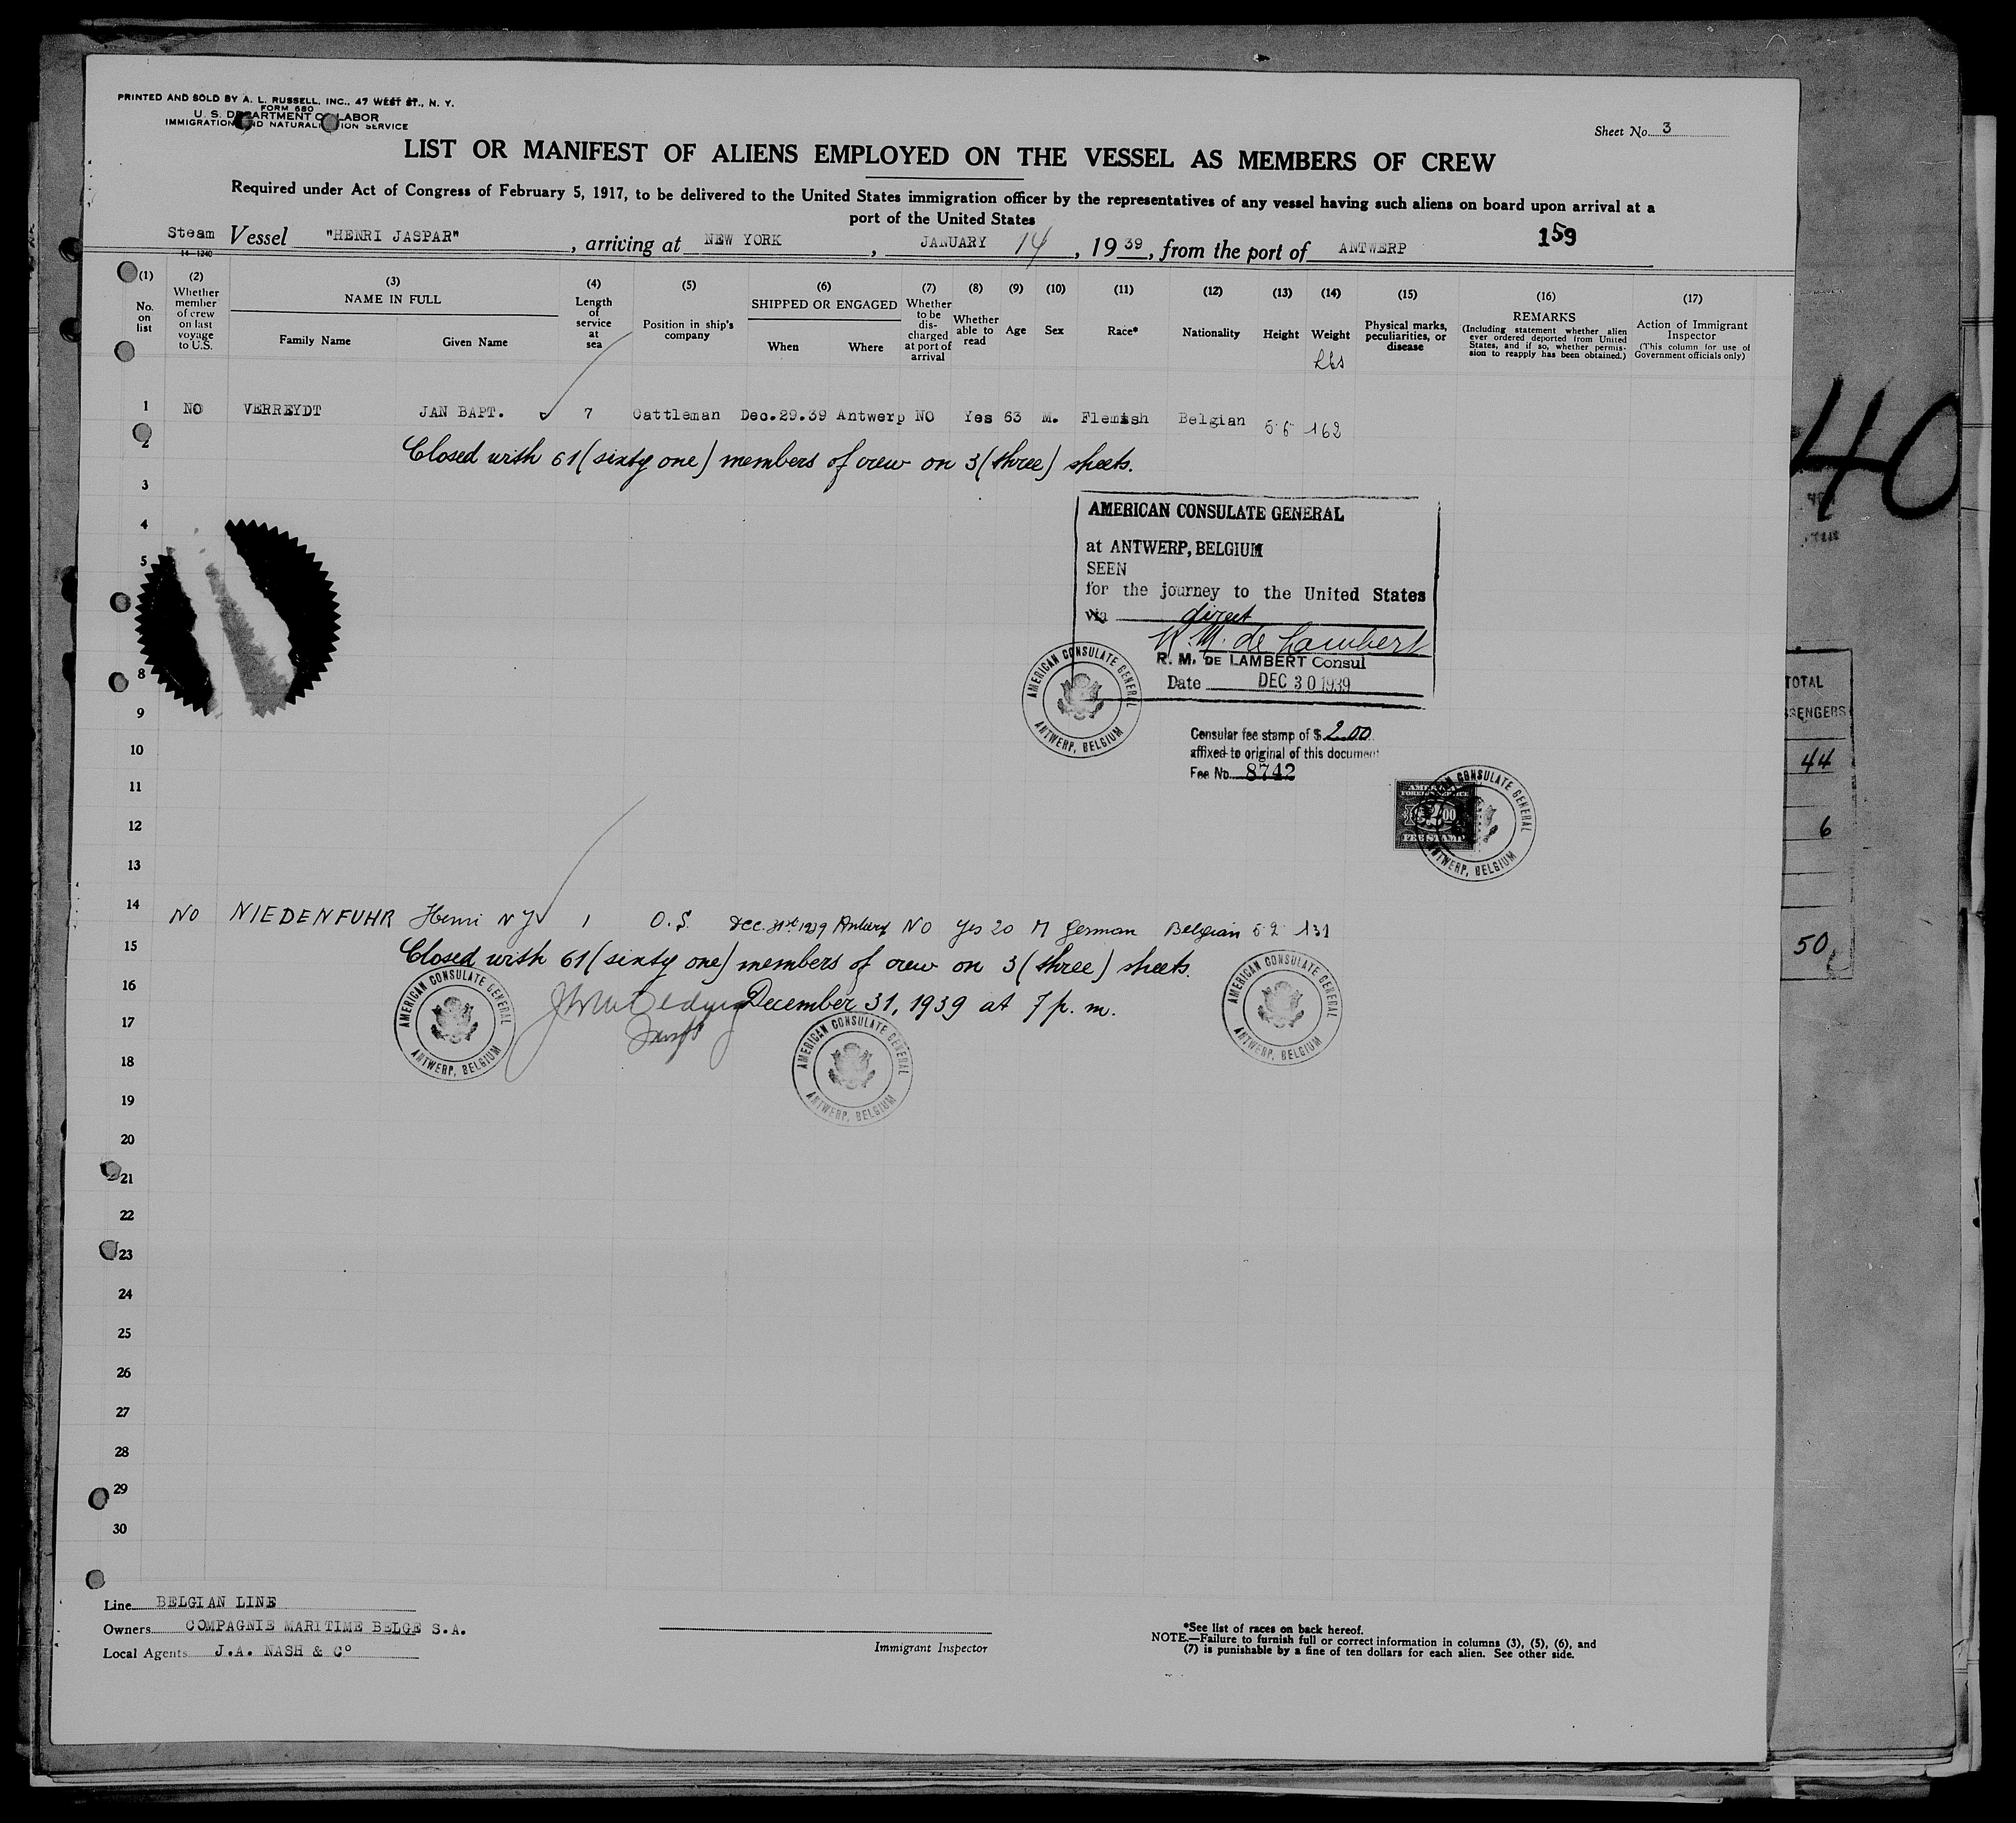 PRINTED AND SOLD BY A. L. RUSSELL, INC., 47 WEST ST., N. Y.
FORM 680
U. S. DEPARTMENT OF LABOR
IMMIGRATION AND NATURALIZATION SERVICE
Sheet No. 3
LIST OR MANIFEST OF ALIENS EMPLOYED ON THE VESSEL AS MEMBERS OF CREW
Required under Act of Congress of February 5, 1917, to be delivered to the United States immigration officer by the representatives of any vessel having such aliens on board upon arrival at a
port of the United States
Steam Vessel "HENRI JASPAR", arriving at NEW YORK, JANUARY 14, 1939, from the port of ANTWERP
159
14-1240
(1) No. on list
(2) Whether member of crew on last voyage to U.S.
(3) NAME IN FULL
Family Name Given Name
(4) Length of service at sea
(5) Position in ship's company
(6) SHIPPED OR ENGAGED
When Where
(7) Whether to be discharged at port of arrival
(8) Whether able to read
(9) Age
(10) Sex
(11) Race*
(12) Nationality
(13) Height
(14) Weight
Lbs
(15) Physical marks, peculiarities, or disease
(16) REMARKS
(Including statement whether alien ever ordered deported from United States, and if so, whether permission to reapply has been obtained.)
(17) Action of Immigrant Inspector
(This column for use of Government officials only)
1 NO VERREYDT JAN BAPT. 7 Cattleman Dec.29.39 Antwerp NO Yes 63 M. Flemish Belgian 5 6 162
2 Closed with 61 (sixty one) members of crew on 3 (three) sheets.
3
4
5
8
9
10
11
12
13
AMERICAN CONSULATE GENERAL
at ANTWERP, BELGIUM
SEEN
for the journey to the United States
via direct
R. M. de Lambert
R. M. DE LAMBERT Consul
Date DEC 30 1939
AMERICAN CONSULATE GENERAL
ANTWERP, BELGIUM
Consular fee stamp of $ 2.00
affixed to original of this document
Fee No. 8742
AMERICAN
FOREIGN SERVICE
$2.00
FEE STAMP
AMERICAN CONSULATE GENERAL
ANTWERP, BELGIUM
14 NO NIEDENFUHR Henri N J 1 O.S. Dec. 31st 1939 Antwerp NO Yes 20 M German Belgian 5 2 131
15 Closed with 61 (sixty one) members of crew on 3 (three) sheets.
16 December 31, 1939 at 7 p. m.
AMERICAN CONSULATE GENERAL
ANTWERP, BELGIUM
AMERICAN CONSULATE GENERAL
ANTWERP, BELGIUM
AMERICAN CONSULATE GENERAL
ANTWERP, BELGIUM
17
18
19
20
21
22
23
24
25
26
27
28
29
30
Line BELGIAN LINE
Owners COMPAGNIE MARITIME BELGE S.A.
Local Agents J.A. NASH & Cº
Immigrant Inspector
*See list of races on back hereof.
NOTE.—Failure to furnish full or correct information in columns (3), (5), (6), and
(7) is punishable by a fine of ten dollars for each alien. See other side.
40
TOTAL
44
6
50